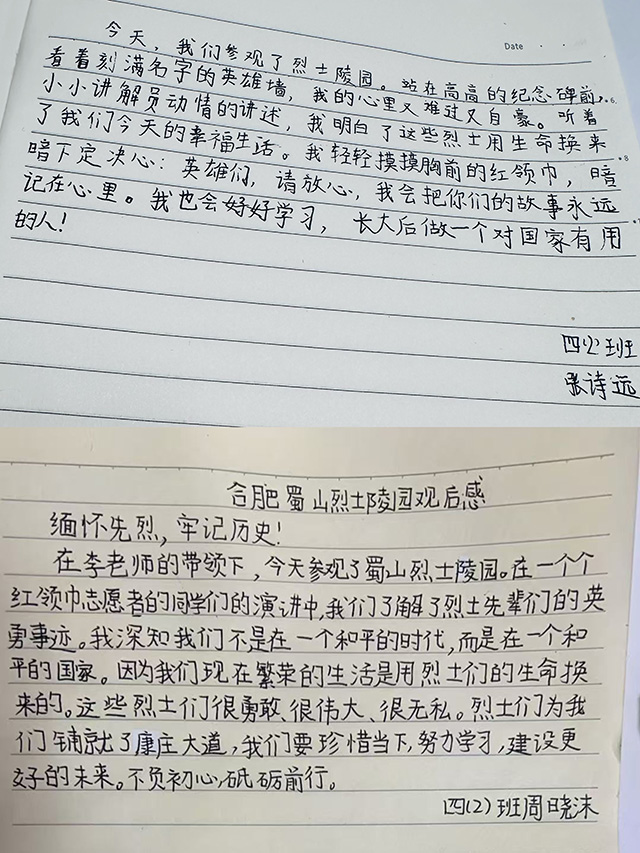 Date
今天，我们参观了烈士陵园。站在高高的纪念碑前，
看着刻满名字的英雄墙，我的心里又难过又自豪。听着
小小讲解员动情的讲述，我明白了这些烈士用生命换来
了我们今天的幸福生活。我轻轻摸摸胸前的红领巾，暗
暗下定决心：英雄们，请放心，我会把你们的故事永远
记在心里。我也会好好学习，长大后做一个对国家有用
的人！
班
张诗远
合肥蜀山烈士陵园观后感
缅怀先烈，牢记历史！
在李老师的带领下，今天参观了蜀山烈士陵园。在一个个
红领巾志愿者的同学们的演讲中，我们了解了烈士先辈们的英
勇事迹。我深知我们不是在一个和平的时代，而是在一个和
平的国家。因为我们现在繁荣的生活是用烈士们的生命换
来的。这些烈士们很勇敢、很伟大、很无私。烈士们为我
们铺就了康庄大道，我们要珍惜当下，努力学习，建设更
好的未来。不负初心，砥砺前行。
四(2)班周晓沫